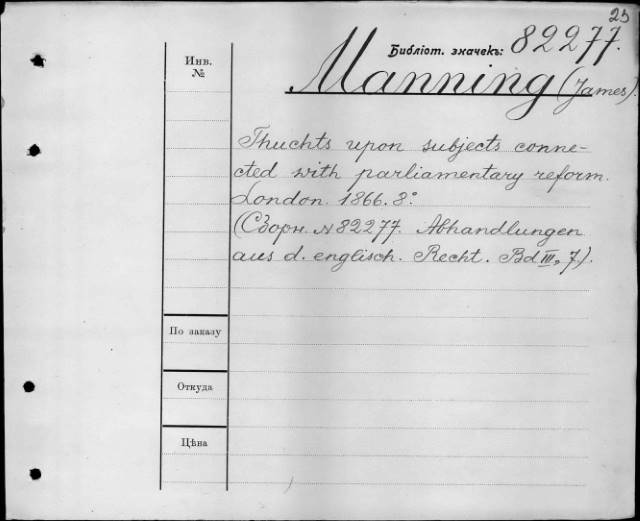 25
Библіот. значекъ: 82277.
Инв.
№
Manning (James).
Thuchts upon subjects conne-
cted with parliamentary reform.
London. 1866. 8°
(Сборн. № 82277. Abhandlungen
aus d. englisch. Recht. Bd III, 7).
По заказу
Откуда
Цѣна